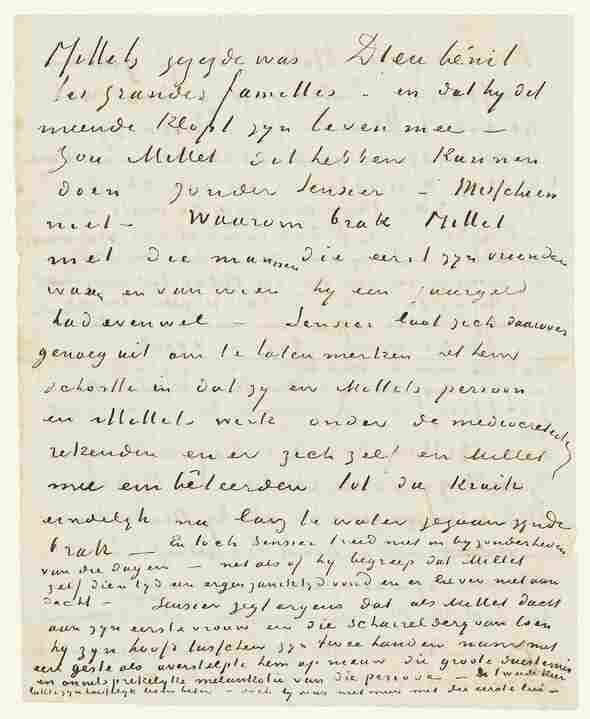 Millets gezegde was Dieu bénit
les grandes familles – en dat hij dit
meende klopt zijn leven mee –
Zou Millet dit hebben kunnen
doen zonder Sensier – Misschien
niet – Waarom brak Millet
met die mannen die eerst zijn vrienden
waren en van wien hij een jaargeld
had evenwel – Sensier laat zich daarover
genoeg uit om te laten merken het hem
schortte in dat zij en Millets persoon
en Millets werk onder de mediocriteiten
rekenden en er zich zelf en Millet
mee embêteerden tot de kruik
eindelijk na lang te water gegaan zijnde
brak – En toch Sensier treed niet in bijzonderheden
van die dagen – net als of hij begreep dat Millet
zelf dien tijd een ergerl tijd vond en er liever niet aan
dacht – Sensier zegt ergens dat als Millet dacht
aan zijn eerste vrouw en die scharrelderij van toen
hij zijn hoofd tusschen zijn twee handen nam met
een geste als overstelpte hem op nieuw die groote duisternis
en onuitsprekelijke melankolie van die periode – De tweede keer
lukte zijn huiselijk leven beter – doch hij was niet meer met die eerste lui –